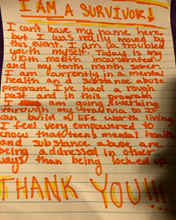 I AM A SURVIVOR!
I can't leave my name here
but I was really moved by
this event. I am a troubled
youth myself. Today is my
10th month incarcerated
and tenth month sober.
I am currently in a mental
health and substance abuse
program. I've had a rough
past and in this program
I am going
through my trauma so I
can build a life worth living.
I feel very empowered to
know that teen's mental health
and substance abuse are
being addressed in other
ways than being locked up.
THANK YOU!!!